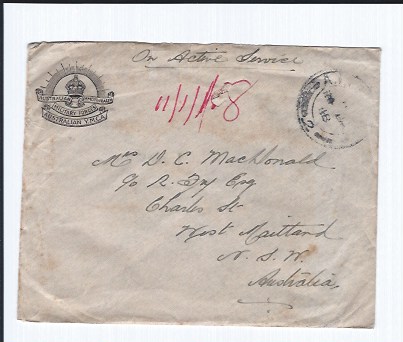 On Active Service
AUSTRALIAN
MILITARY FORCES
AUSTRALIAN Y.M.C.A.
11/1/18
Mrs D. C. MacDonald
c/o R. Fry Esq
Charles St
West Maitland
N. S. W.
Australia